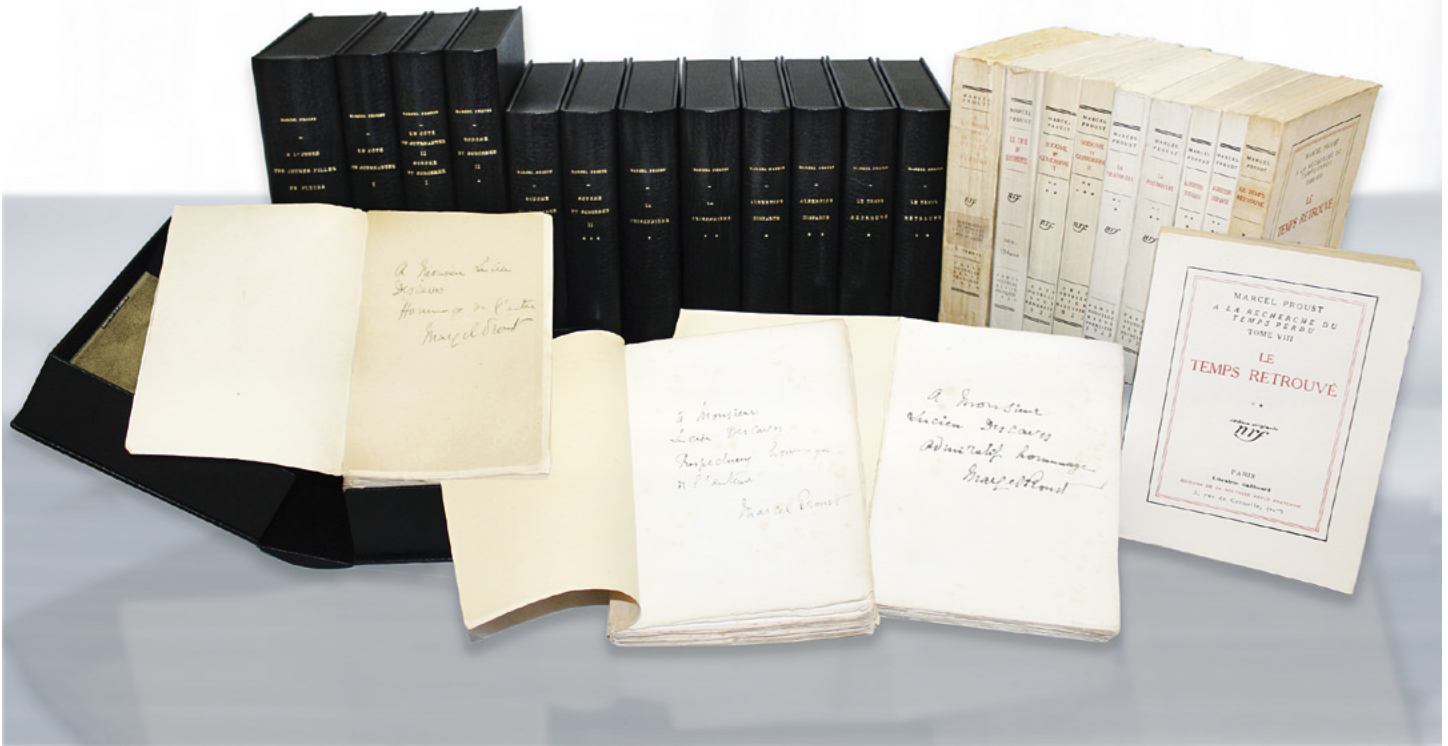 MARCEL PROUST
A L'OMBRE
DES JEUNES FILLES
EN FLEURS
MARCEL PROUST
LE CÔTÉ
DE GUERMANTES
I
MARCEL PROUST
LE CÔTÉ
DE GUERMANTES
II
SODOME
ET GOMORRHE
I
MARCEL PROUST
SODOME
ET GOMORRHE
II
*
MARCEL PROUST
SODOME
MARCEL PROUST
SODOME
ET GOMORRHE
II
* * *
MARCEL PROUST
LA
PRISONNIÈRE
*
MARCEL PROUST
LA
PRISONNIÈRE
* *
MARCEL PROUST
ALBERTINE
DISPARUE
*
MARCEL PROUST
ALBERTINE
DISPARUE
* *
MARCEL PROUST
LE TEMPS
RETROUVÉ
*
MARCEL PROUST
LE TEMPS
RETROUVÉ
* *
MARCEL
PROUST
MARCEL
PROUST
LE CÔTÉ
DE
GUERMANTES
nrf
MARCEL
PROUST
SODOME
ET
GOMORRHE
II
nrf
MARCEL
PROUST
SODOME
ET
GOMORRHE
II
nrf
MARCEL
PROUST
LA
PRISONNIÈRE
*
nrf
MARCEL
PROUST
LA
PRISONNIÈRE
* *
nrf
MARCEL
PROUST
ALBERTINE
DISPARUE
*
nrf
MARCEL
PROUST
ALBERTINE
DISPARUE
* *
nrf
MARCEL
PROUST
LE TEMPS
RETROUVÉ
MARCEL PROUST
A LA RECHERCHE DU
TEMPS PERDU
TOME VIII
LE
TEMPS RETROUVÉ
A Monsieur Lucien
Descaves
Hommage de l'auteur
Marcel Proust
A Monsieur
Lucien Descaves
Respectueux hommage
de l'auteur
Marcel Proust
A Monsieur
Lucien Descaves
admiratif hommage
Marcel Proust
MARCEL PROUST
A LA RECHERCHE DU
TEMPS PERDU
TOME VIII
LE
TEMPS RETROUVÉ
* *
édition originale
nrf
PARIS
Librairie Gallimard
ÉDITIONS DE LA NOUVELLE REVUE FRANÇAISE
3, rue de Grenelle,